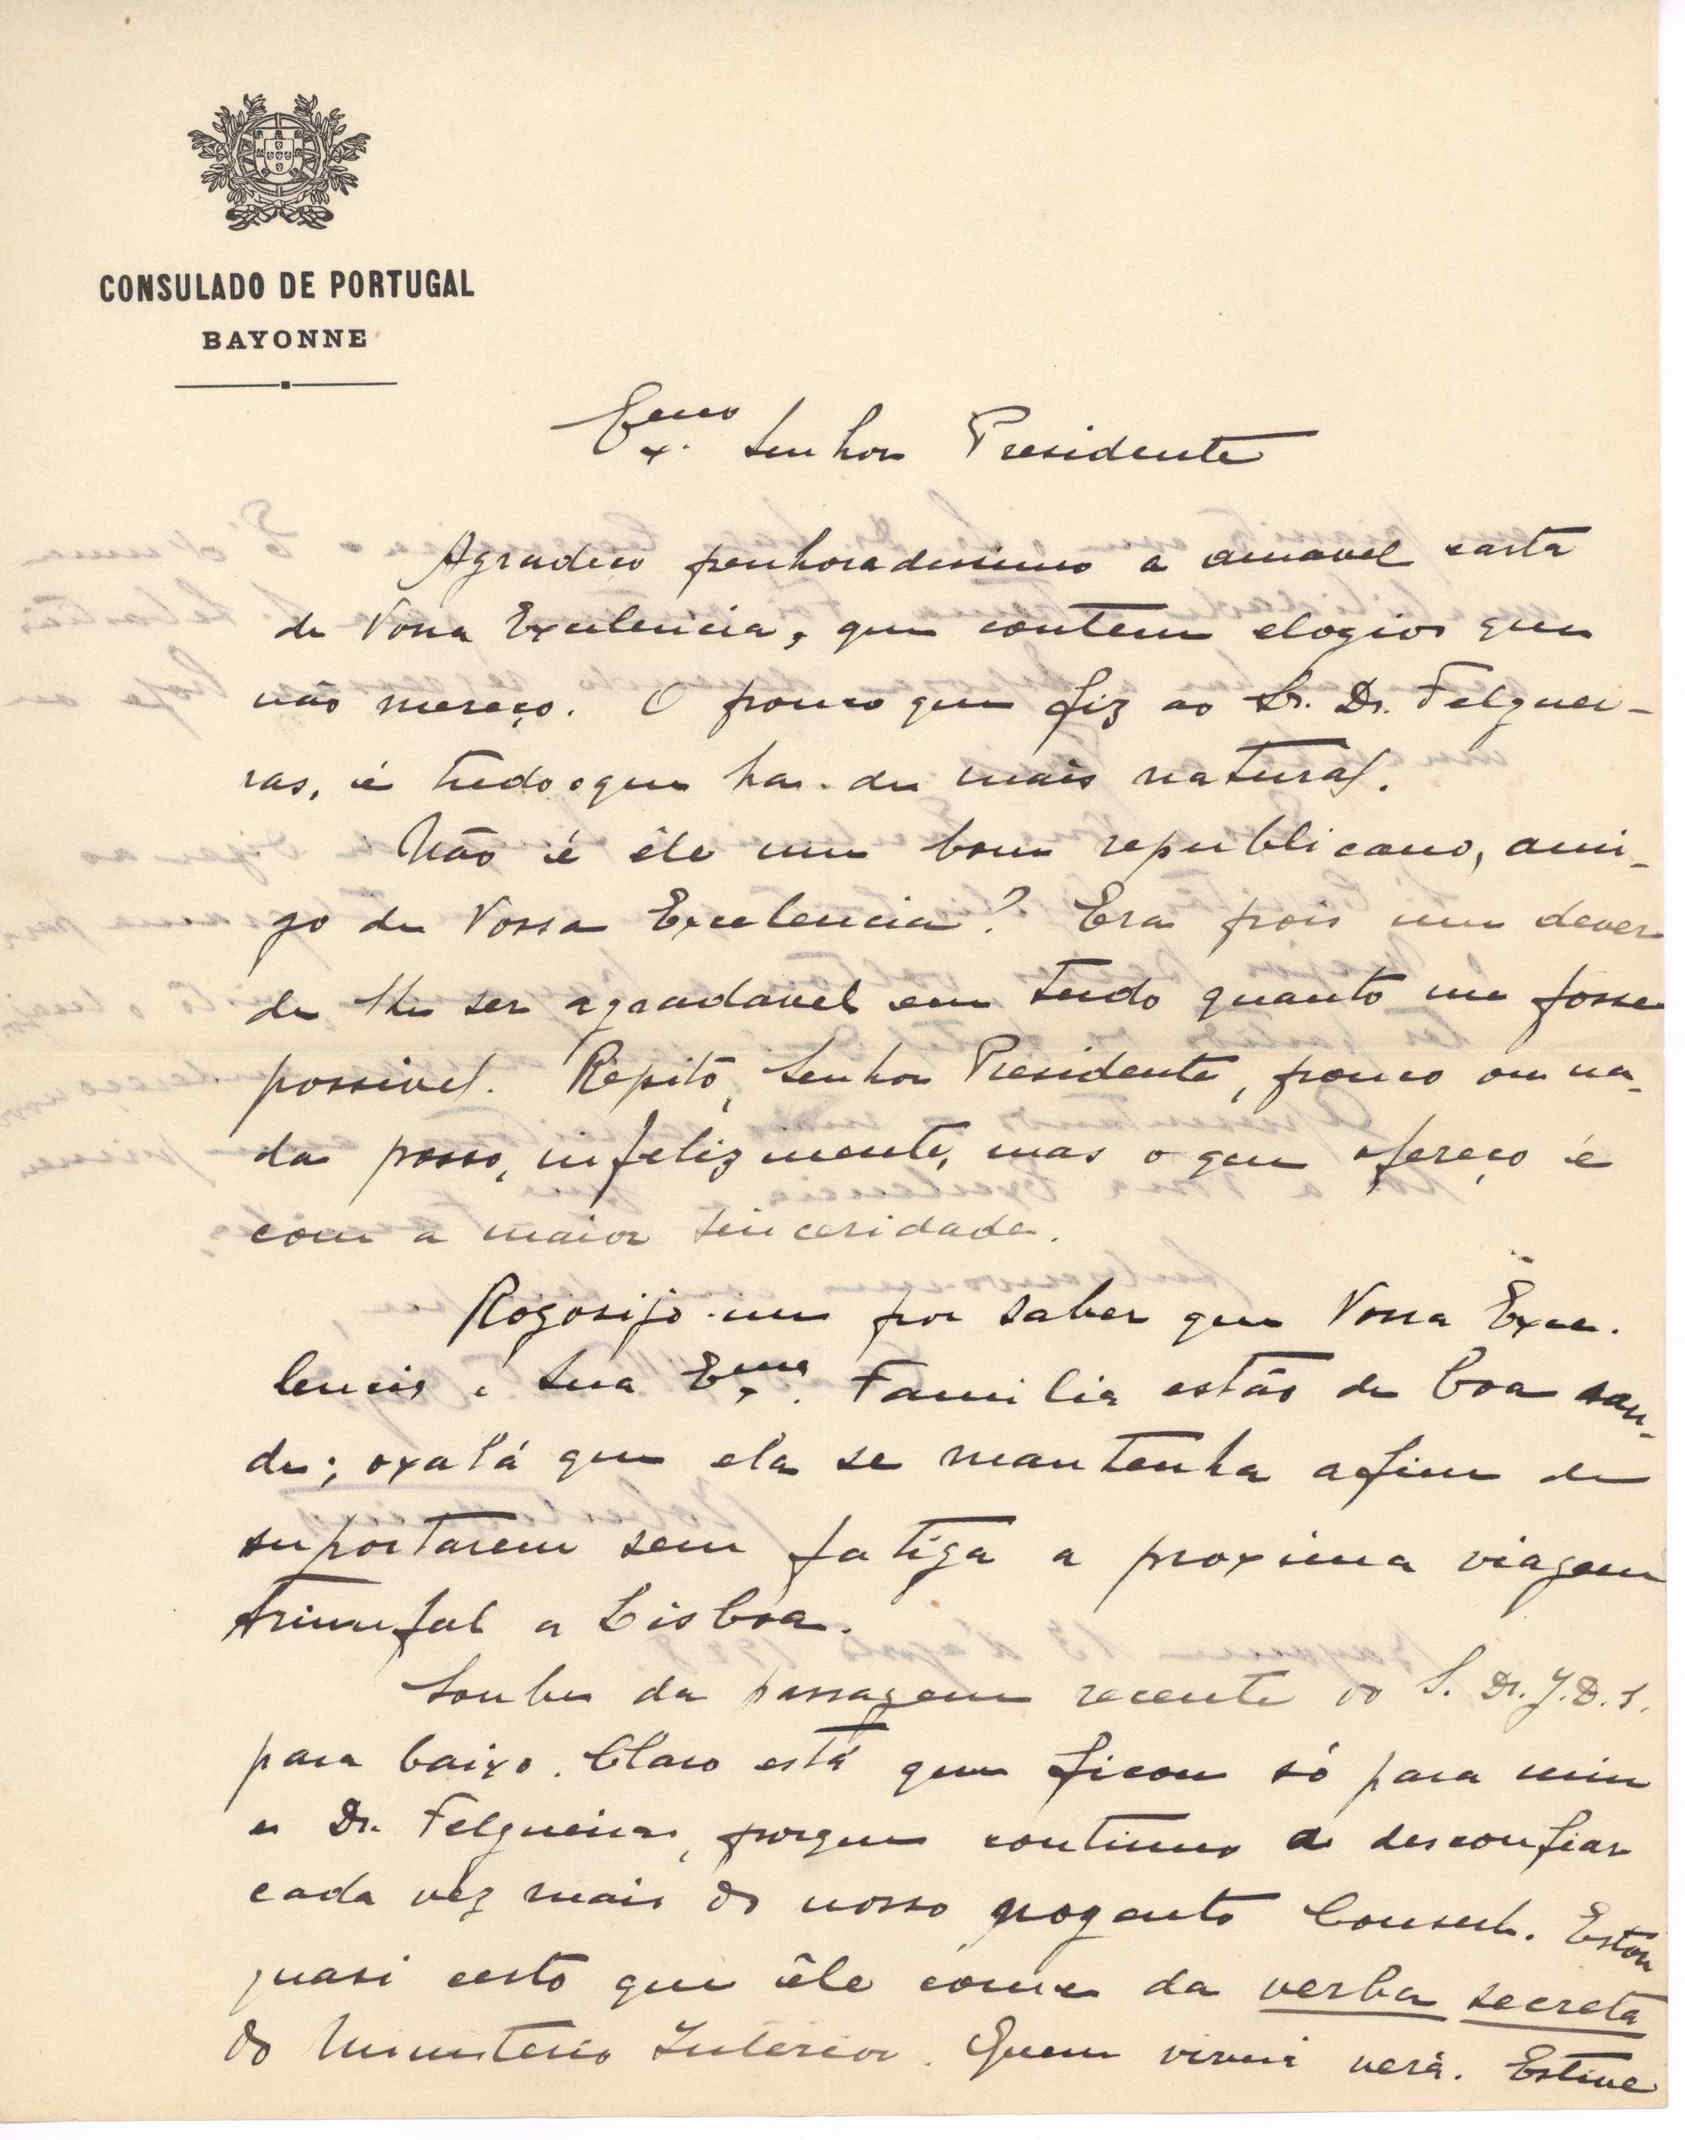 CONSULADO DE PORTUGAL
BAYONNE
Exmo. Senhor Presidente
Agradeço penhoradissimo a amavel carta
de Vossa Excelencia, que contem elogios que
não mereço. O pouco que fiz ao Sr. Dr. Felguei-
ras, é tudo o que ha de mais natural.
Não é êle um bom republicano, ami-
go de Vossa Excelencia? Era pois um dever
de lhe ser agradavel em tudo quanto me fosse
possivel. Repito, Senhor Presidente, pouco ou na-
da posso, infelizmente, mas o que ofereço é
com a maior sinceridade.
Rogosijo-me por saber que Vossa Exce-
lencia e Sua Exma. Familia estão de boa sau-
de; oxalá que ela se mantenha afim de
suportarem sem fatiga a proxima viagem
triunfal a Lisboa.
Soube da passagem recente do S. Dr. J. D. S.
para baixo. Claro está que ficou só para mim
e Dr. Felgueiras, porque continuo a desconfiar
cada vez mais do nosso Consul. Estou
quasi certo que êle come da verba secreta
do Ministerio Interior. Quem viver verá. Estive